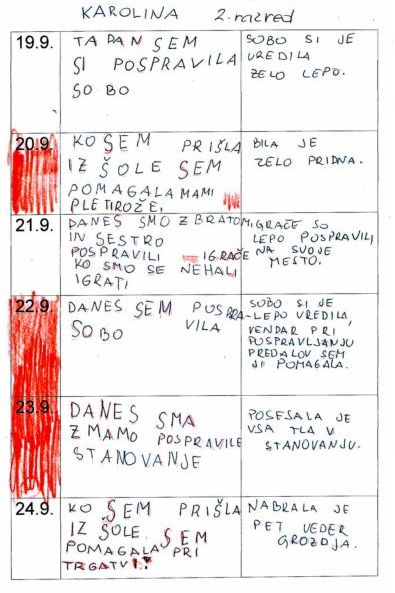 KAROLINA 2. razred
19.9.
TA DAN SEM
SI POSPRAVILA
SOBO
SOBO SI JE
UREDILA
ZELO LEPO.
20.9.
KO SEM PRIŠLA
IZ ŠOLE SEM
POMAGALA MAMI
PLETI ROŽE.
BILA JE
ZELO PRIDNA.
21.9.
DANES SMO Z BRATOM
IN SESTRO
POSPRAVILI IGRAČE
KO SMO SE NEHALI
IGRATI
IGRAČE SO
LEPO POSPRAVILI
NA SVOJE
MESTO.
22.9.
DANES SEM POSPRA-
VILA
SOBO
SOBO SI JE
LEPO UREDILA,
VENDAR PRI
POSPRAVLJANJU
PREDALOV SEM
JI POMAGALA.
23.9.
DANES SMA
Z MAMO POSPRAVILE
STANOVANJE
POSESALA JE
VSA TLA V
STANOVANJU.
24.9.
KO SEM PRIŠLA
IZ ŠOLE SEM
POMAGALA PRI
TRGATVI!
NABRALA JE
PET VEDER
GROZDJA.